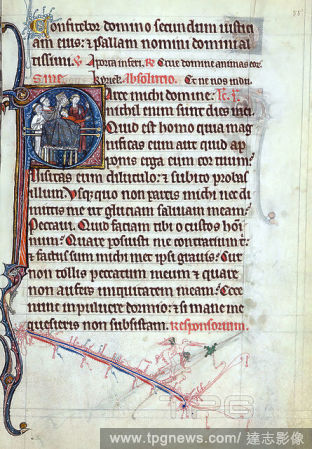 Confitebor domino secundum iustici
am eius: & psallam nomini domini al
tissimi. A porta inferi. Erue domine animas eor.
Kyriel. Absolutio. Et ne nos indu.
Parce michi domine:
michel enim sunt dies mei
Quid est homo quia mag
nificas eum aut quid ap
ponis erga eum cor tuum:
Visitas eum diluculo: & subito probas
illum. Usq; quo non parcis michi nec di
mittis me ut glutiam saliuam meam:
Peccaui. Quid faciam tibi o custos homi
num: Quare posuisti me contrarium t
& factus sum michi met ipsi grauis: Cur
non tollis peccatum meum & quare
non aufers iniquitatem meam: Ecce
nunc in puluere dormio: & si mane me
quesieris non subsistam. Responsorium.
TPG
www.tpgnews.com/ 達志影像